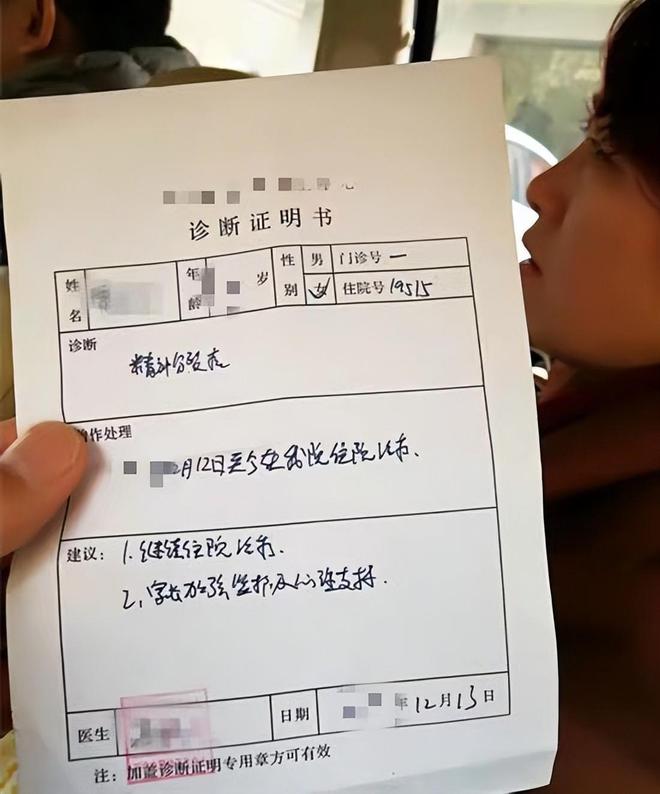 诊断证明书
姓名 年龄 岁 性别 男 女 门诊号 一
住院号 19515
诊断
精神分裂症
作处理
2月12日至今在我院住院治疗.
建议: 1.继续住院治疗.
2.家长加强监护及心理支持.
医生 日期 年12月13日
注:加盖诊断证明专用章方可有效